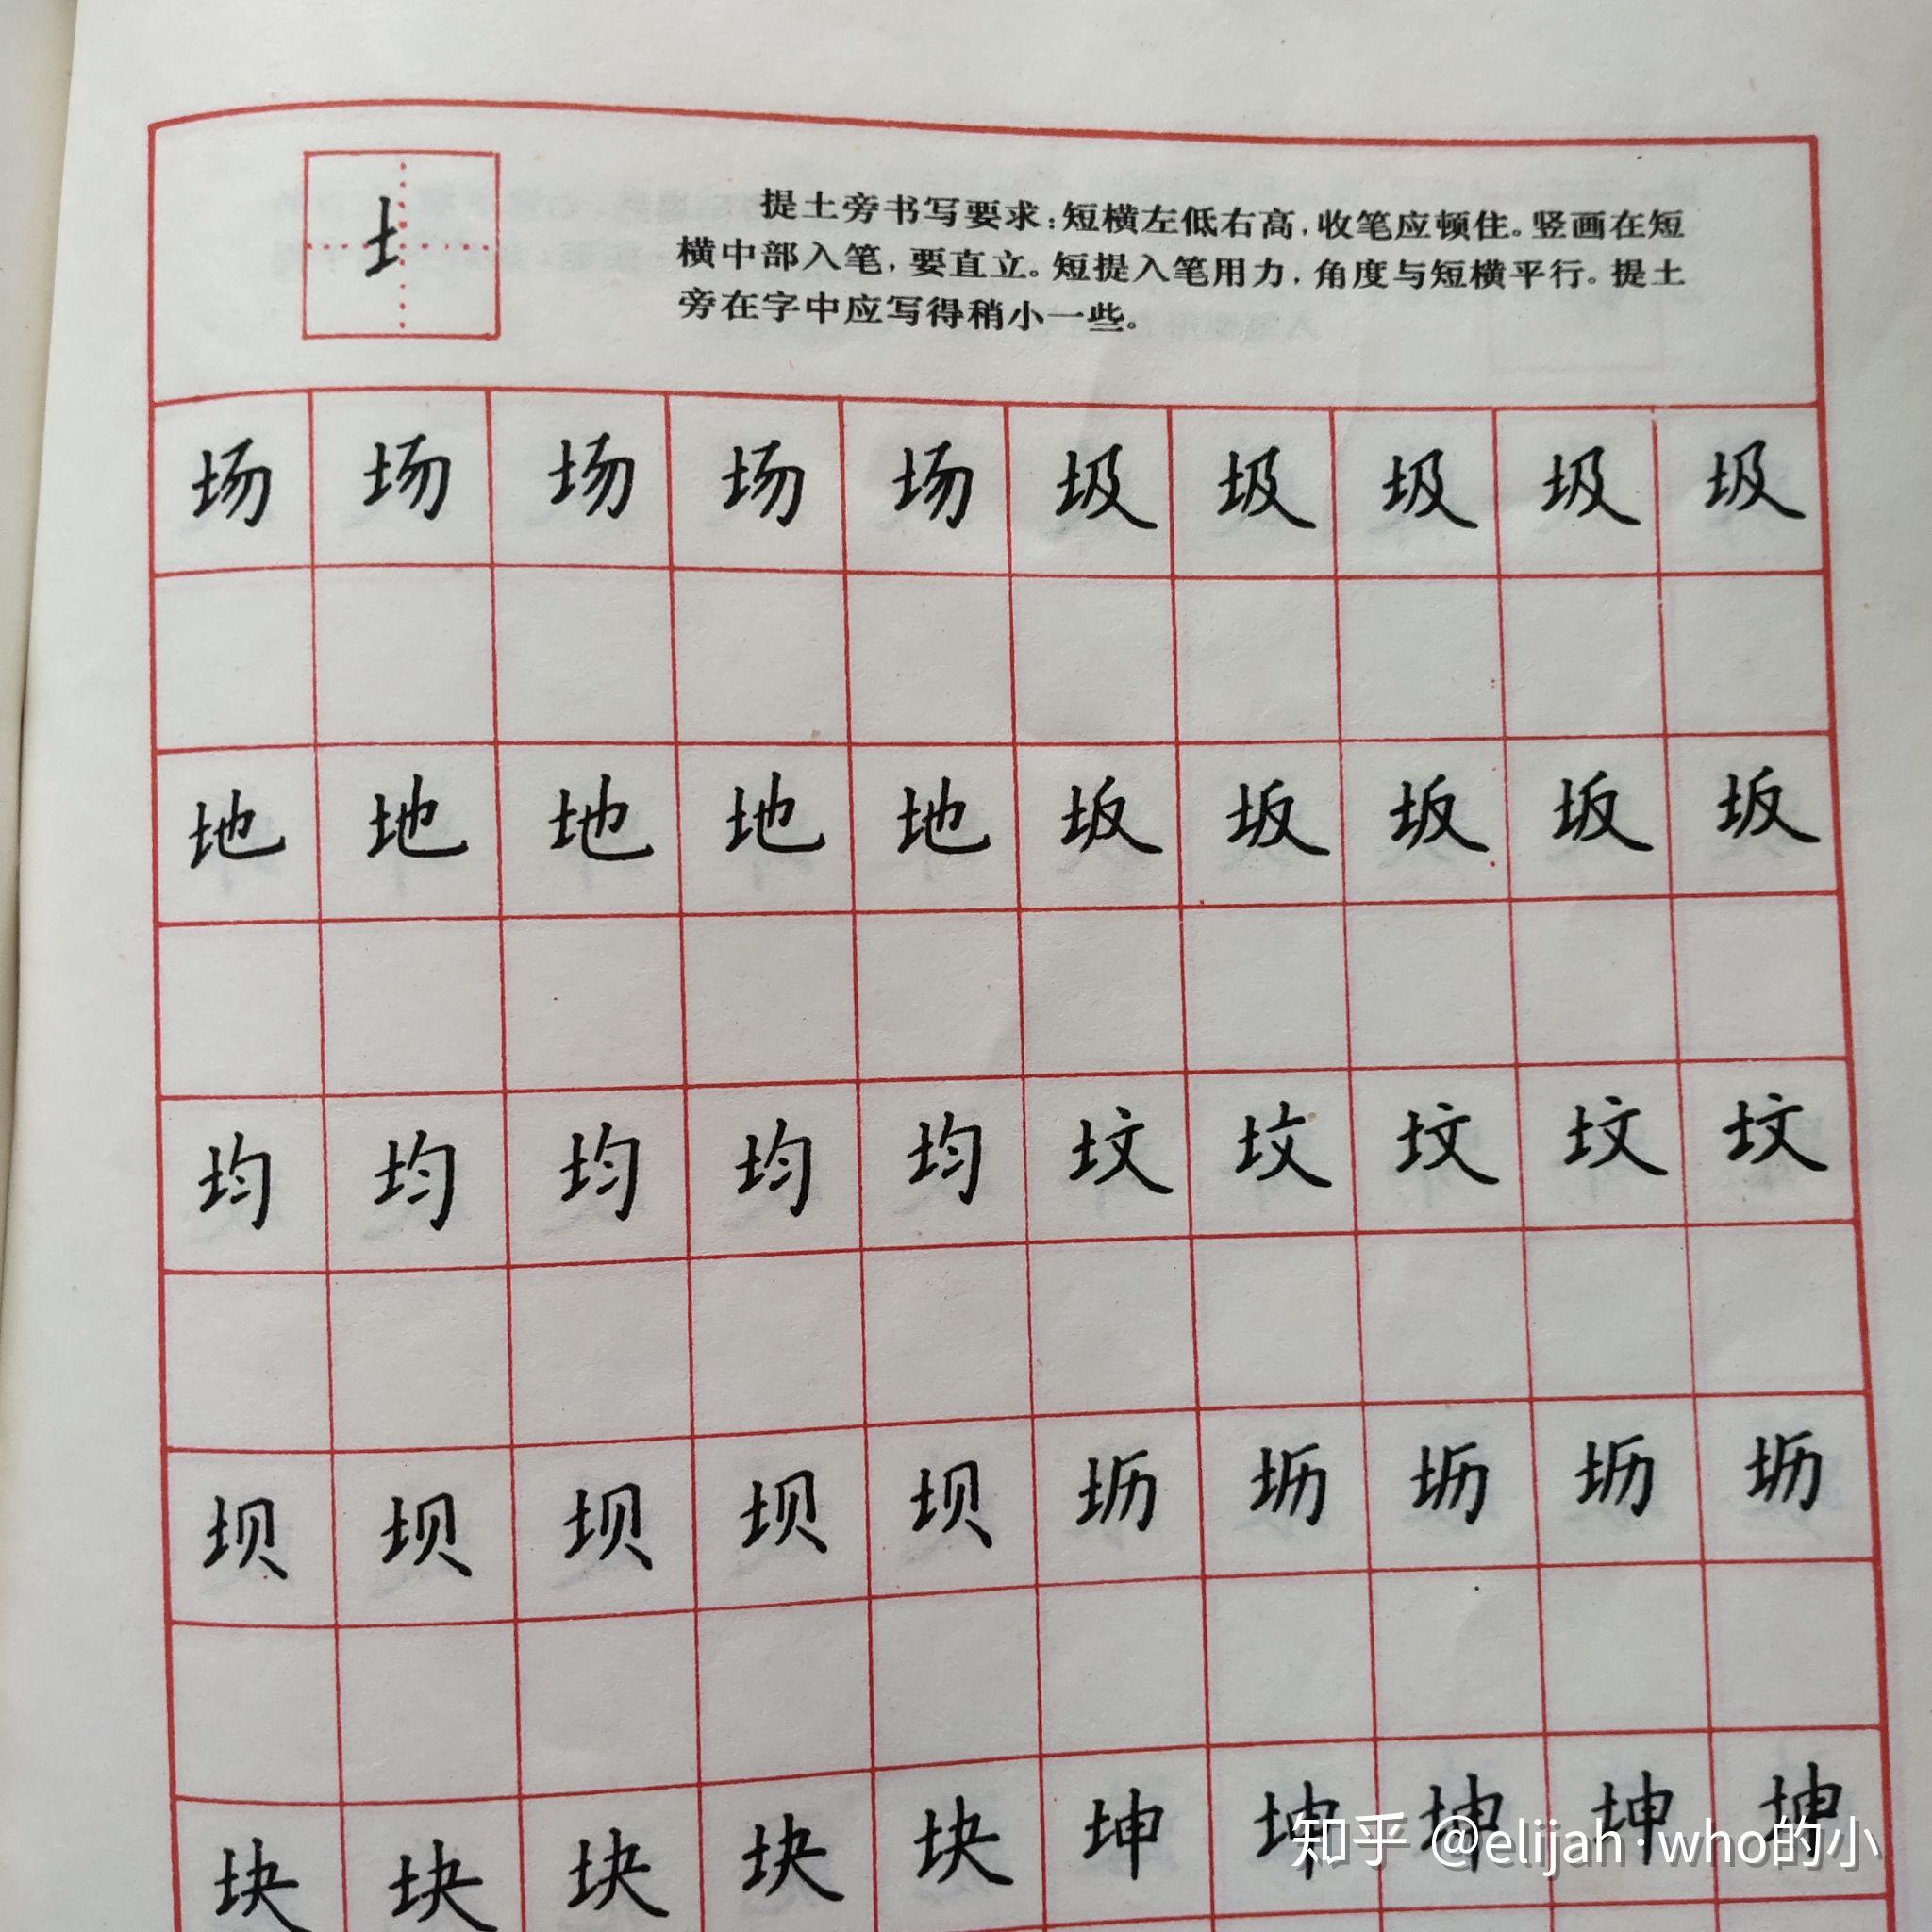 土
提土旁书写要求:短横左低右高,收笔应顿住。竖画在短
横中部入笔,要直立。短提入笔用力,角度与短横平行。提土
旁在字中应写得稍小一些。
场 场 场 场 场 圾 圾 圾 圾 圾
地 地 地 地 地 坂 坂 坂 坂 坂
均 均 均 均 均 坟 坟 坟 坟 坟
坝 坝 坝 坝 坝 坜 坜 坜 坜 坜
块 块 块 块 块 坤 坤 坤 坤 坤
知乎 @elijah·who的小